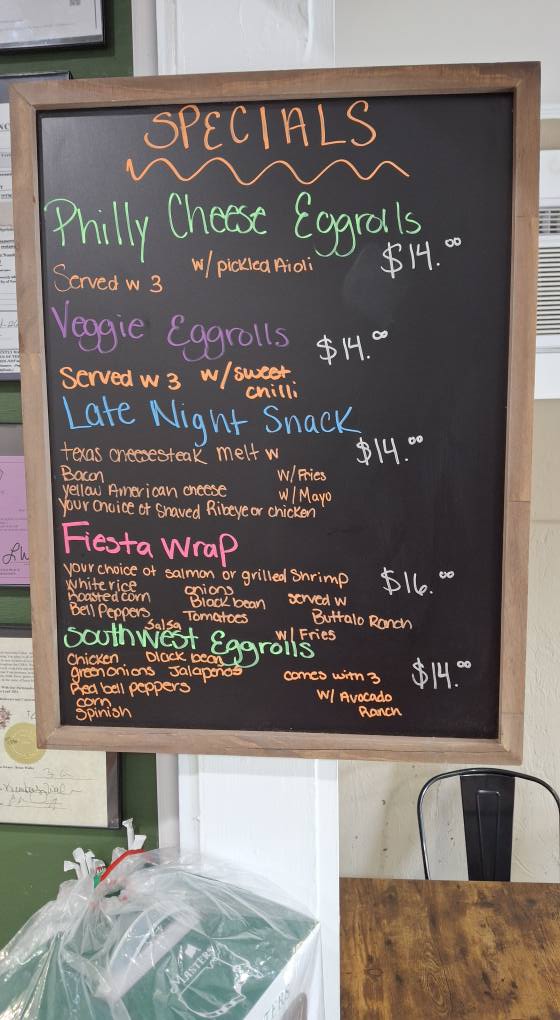 SPECIALS
Philly Cheese Eggrolls
$14.00
Served w 3 w/ pickled Aioli
Veggie Eggrolls
$14.00
Served w 3 w/ sweet
chilli
Late Night Snack
$14.00
texas cheesesteak melt w
Bacon w/ Fries
yellow American cheese w/ Mayo
your choice of Shaved Ribeye or chicken
Fiesta Wrap
$16.00
your choice of salmon or grilled Shrimp
white rice onions
Roasted corn Black bean served w
Bell Peppers Tomatoes Buffalo Ranch
Salsa w/ Fries
Southwest Eggrolls
$14.00
Chicken black bean
green onions Jalapenos comes with 3
Red bell peppers w/ Avocado
corn Ranch
Spinish